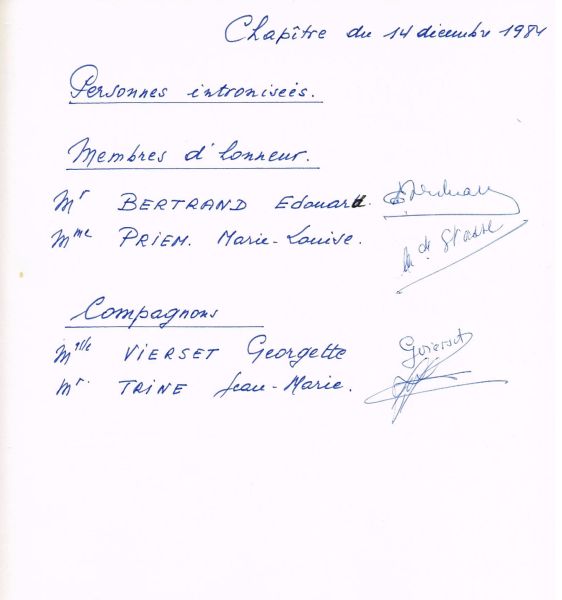 Chapître du 14 décembre 1984
Personnes intronisées.
Membres d'honneur.
Mr BERTRAND Edouard.
Mme PRIEM. Marie-Louise.
Compagnons
Mlle VIERSET Georgette Gvierset
Mr. TRINE Jean-Marie.